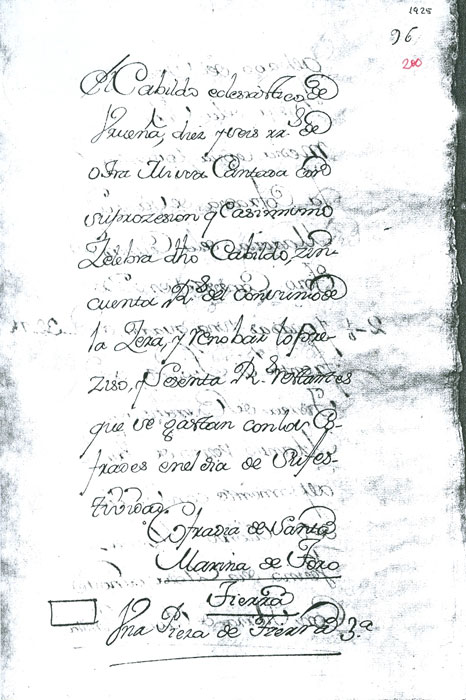 1925
96
200
El Cabildo eclesiastico de
Yrueña, diez y seis rr.s de
otra Missa Cantada Con
su prozesion q Casimismo
Zelebra dho Cabildo, zin-
cuenta R.s del Consumo de
la Zera, y renobar lo pre-
ziso, y Sesenta R.s restantes
que se gastan con los Co-
frades en el dia de su fes-
tividad
Cofradia de Santa
Marina de Toro
Tierra
Vna Pieza de Tierra 3.a